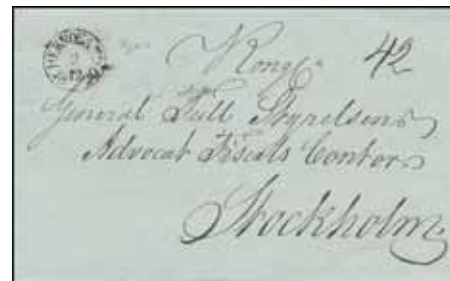 Kongl. 42
General Tull Styrelsens
Advocat Fiscals Contor
Stockholm